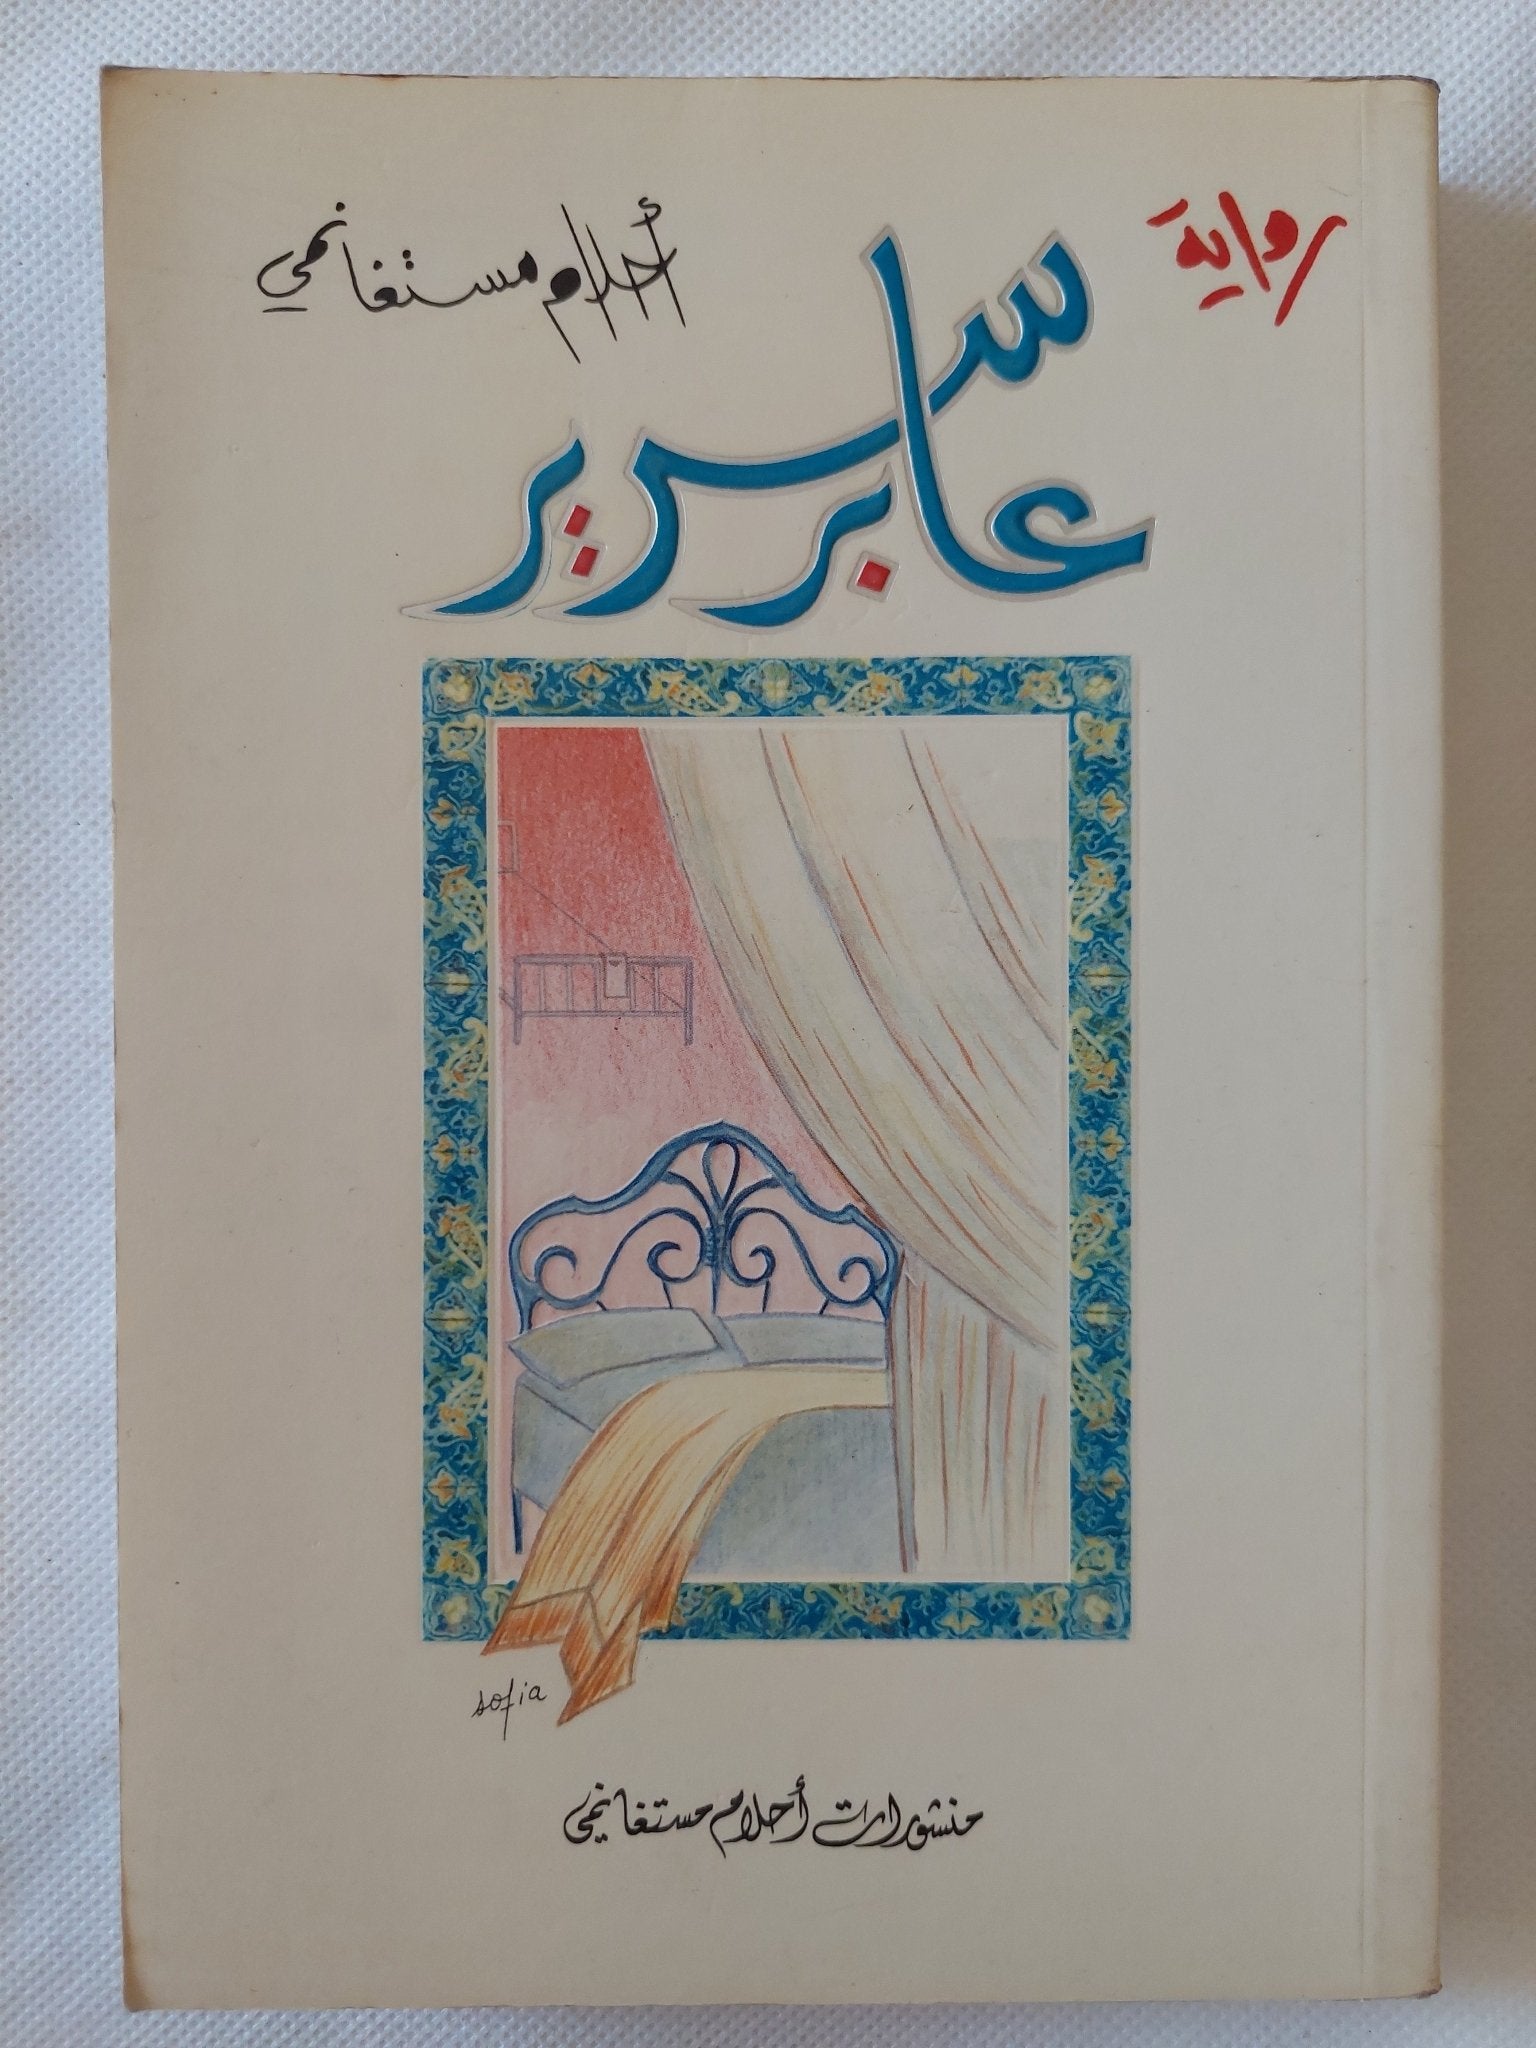 رواية
أحلام مستغانمي
عابر سرير
sofia
منشورات أحلام مستغانمي